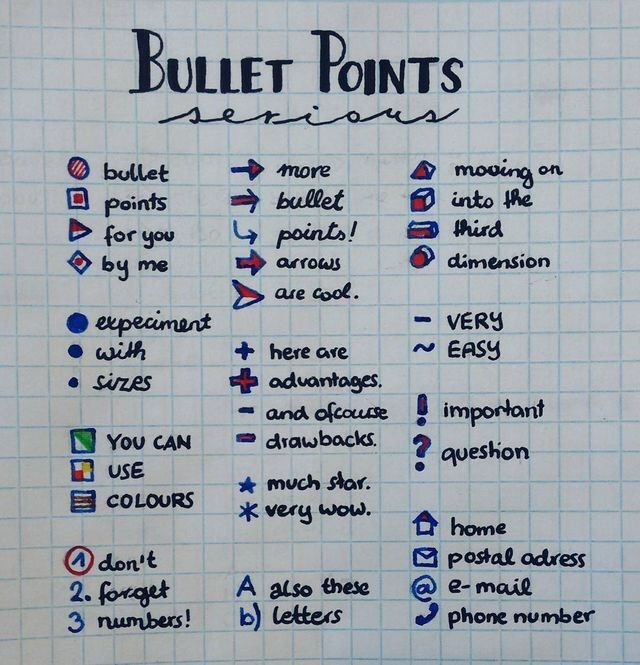 BULLET POINTS
serious
bullet
points
for you
by me
experiment
with
sizes
YOU CAN
USE
COLOURS
1 don't
2. forget
3 numbers!
more
bullet
points!
arrows
are cool.
+ here are
advantages.
- and ofcouse
drawbacks.
much star.
* very wow.
A also these
b) letters
moving on
into the
third
dimension
- VERY
~ EASY
! important
? question
home
postal adress
@ e-mail
phone number